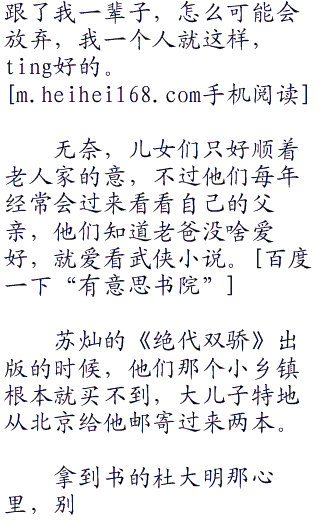 跟了我一辈子，怎么可能会
放弃，我一个人就这样，
ting好的。
[m.heihei168.com手机阅读]
无奈，儿女们只好顺着
老人家的意，不过他们每年
经常会过来看看自己的父
亲，他们知道老爸没啥爱
好，就爱看武侠小说。[百度
一下“有意思书院”]
苏灿的《绝代双骄》出
版的时候，他们那个小乡镇
根本就买不到，大儿子特地
从北京给他邮寄过来两本。
拿到书的杜大明那心
里，别